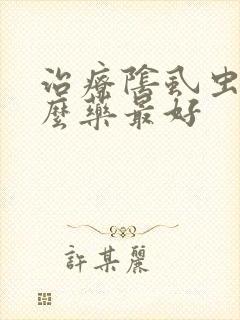 治療陰虱虫
麼藥最好
許某麗